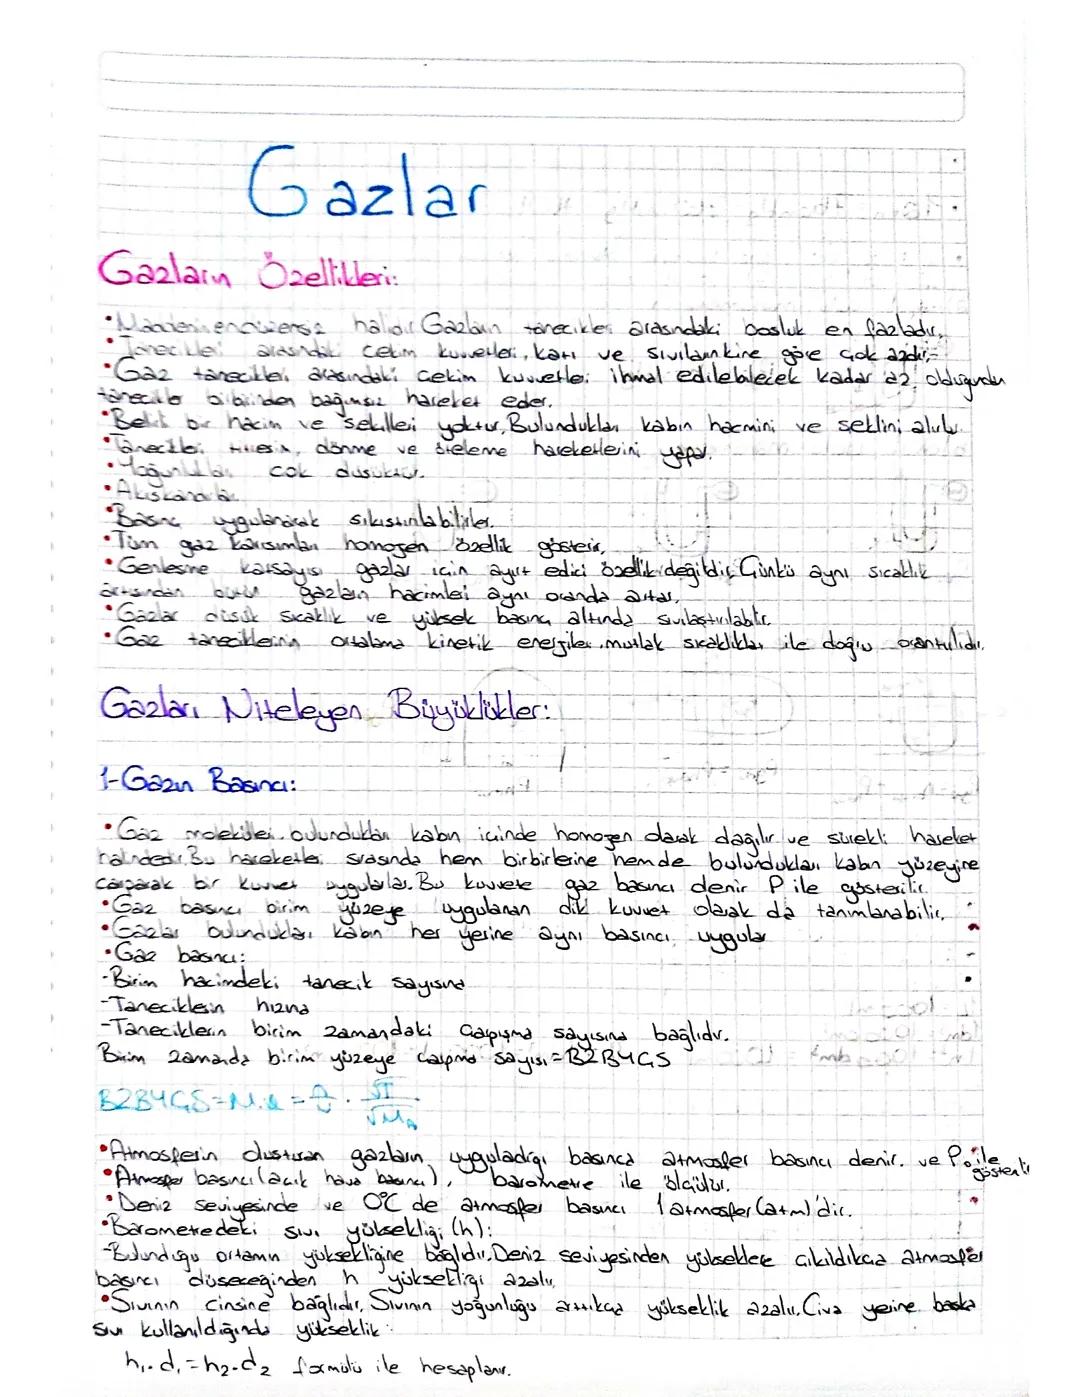 Gazlar
Gazların Özellikleri:
•Maddenin en düzensiz halidir. Gazların tanecikleri arasındaki boşluk en fazladır.
•Tanecikleri arasındaki çekim kuvvetleri, katı ve sıvılarınkine göre çok azdır.
•Gaz tanecikleri arasındaki çekim kuvvetleri ihmal edilebilecek kadar az olduğundan
tanecikler birbirinden bağımsız hareket eder.
•Belirli bir hacim ve şekilleri yoktur, Bulundukları kabın hacmini ve şeklini alırlar.
•Tanecikleri titreşim, dönme ve öteleme hareketlerini yapar.
•Yoğunlukları çok düşüktür.
•Akışkandırlar.
•Basınç uygulanarak sıkıştırılabilirler.
•Tüm gaz karışımları homojen özellik gösterir.
•Genleşme katsayısı gazlar için ayırt edici özellik değildir. Çünkü aynı sıcaklık
artışından bütün gazların hacimleri aynı oranda artar.
•Gazlar düşük sıcaklık ve yüksek basınç altında sıvılaştırılabilir.
•Gaz taneciklerinin ortalama kinetik enerjileri mutlak sıcaklıkları ile doğru orantılıdır.
Gazları Niteleyen Büyüklükler:
1-Gazın Basıncı:
•Gaz molekülleri bulundukları kabın içinde homojen olarak dağılır ve sürekli hareket
halindedir. Bu hareketler sırasında hem birbirlerine hemde bulundukları kabın yüzeyine
çarparak bir kuvvet uygularlar. Bu kuvvete gaz basıncı denir P ile gösterilir.
•Gaz basıncı birim yüzeye uygulanan dik kuvvet olarak da tanımlanabilir.
•Gazlar bulundukları kabın her yerine aynı basıncı uygular
•Gaz basıncı:
-Birim hacimdeki tanecik sayısına
-Taneciklerin hızına
-Taneciklerin birim zamandaki çarpışma sayısına bağlıdır.
Birim zamanda birim yüzeye çarpma sayısı=BZBYÇS
BZBYÇS= = n/V . √T/√MA
•Atmosferin oluşturan gazların uyguladığı basınca atmosfer basıncı denir. ve P₀ ile gösterilir
•Atmosfer basıncı (açık hava basıncı), barometre ile ölçülür.
•Deniz seviyesinde ve 0°C de atmosfer basıncı 1 atmosfer (atm)'dir.
•Barometredeki sıvı yüksekliği (h):
-Bulunduğu ortamın yüksekliğine bağlıdır. Deniz seviyesinden yükseklere çıkıldıkça atmosfer
basıncı düşeceğinden h yüksekliği azalır.
•Sıvının cinsine bağlıdır, Sıvının yoğunluğu arttıkça yükseklik azalır. Civa yerine başka
sıvı kullanıldığında yükseklik:
h₁.d₁=h₂.d₂ formülü ile hesaplanır.